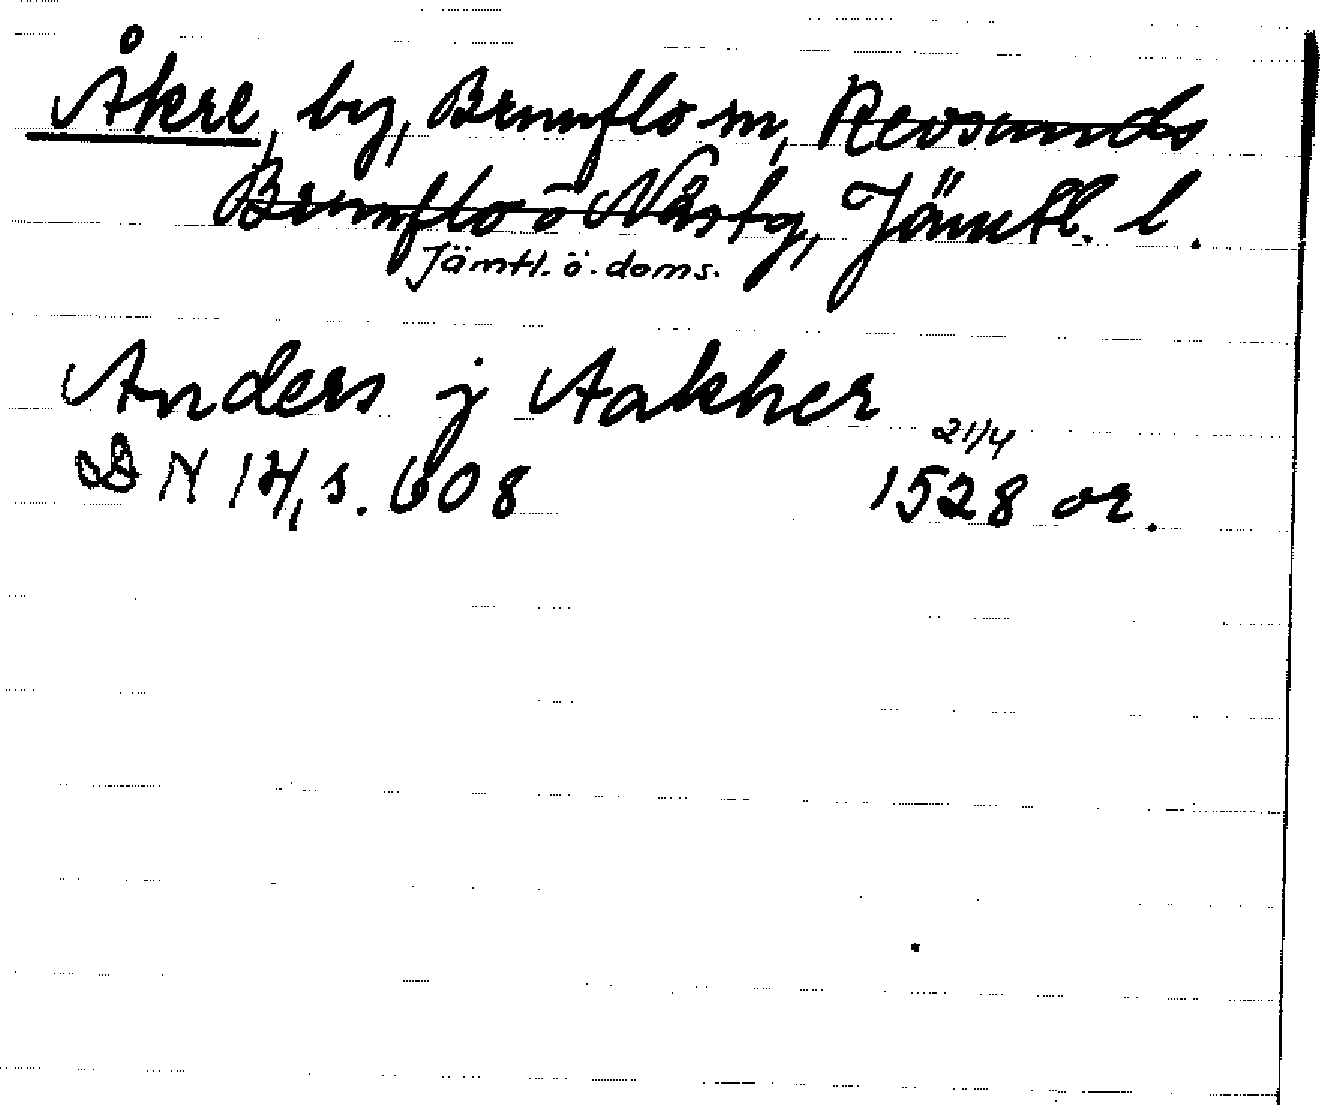 Åkre, by, Brunflo sn, Revsunds
Brunflo o Näs tg, Jämtl. l.
Jämtl. ö. doms.
Anders j Aakher
21/4
DN 14, s. 608 1528 or.